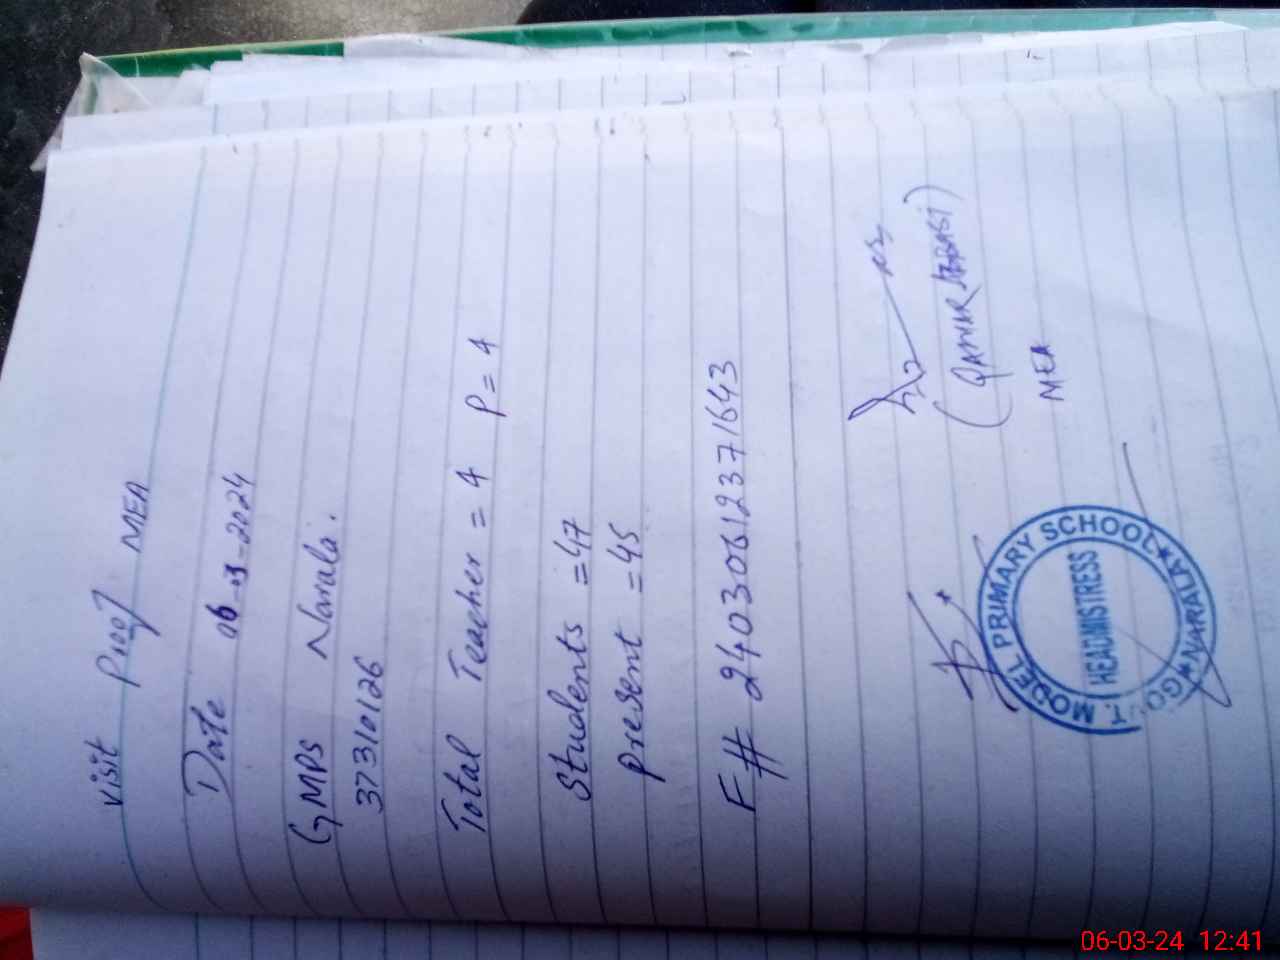 visit Proof MEA
Date 06-03-2024
GMPS Narala.
37310126
Total Teacher = 4 P = 4
Students = 47
present = 45
F# 24030612371643
(QAMAR ABBASI)
MEA
GOVT. MODEL PRIMARY SCHOOL★NARALA★
HEADMISTRESS
06-03-24 12:41